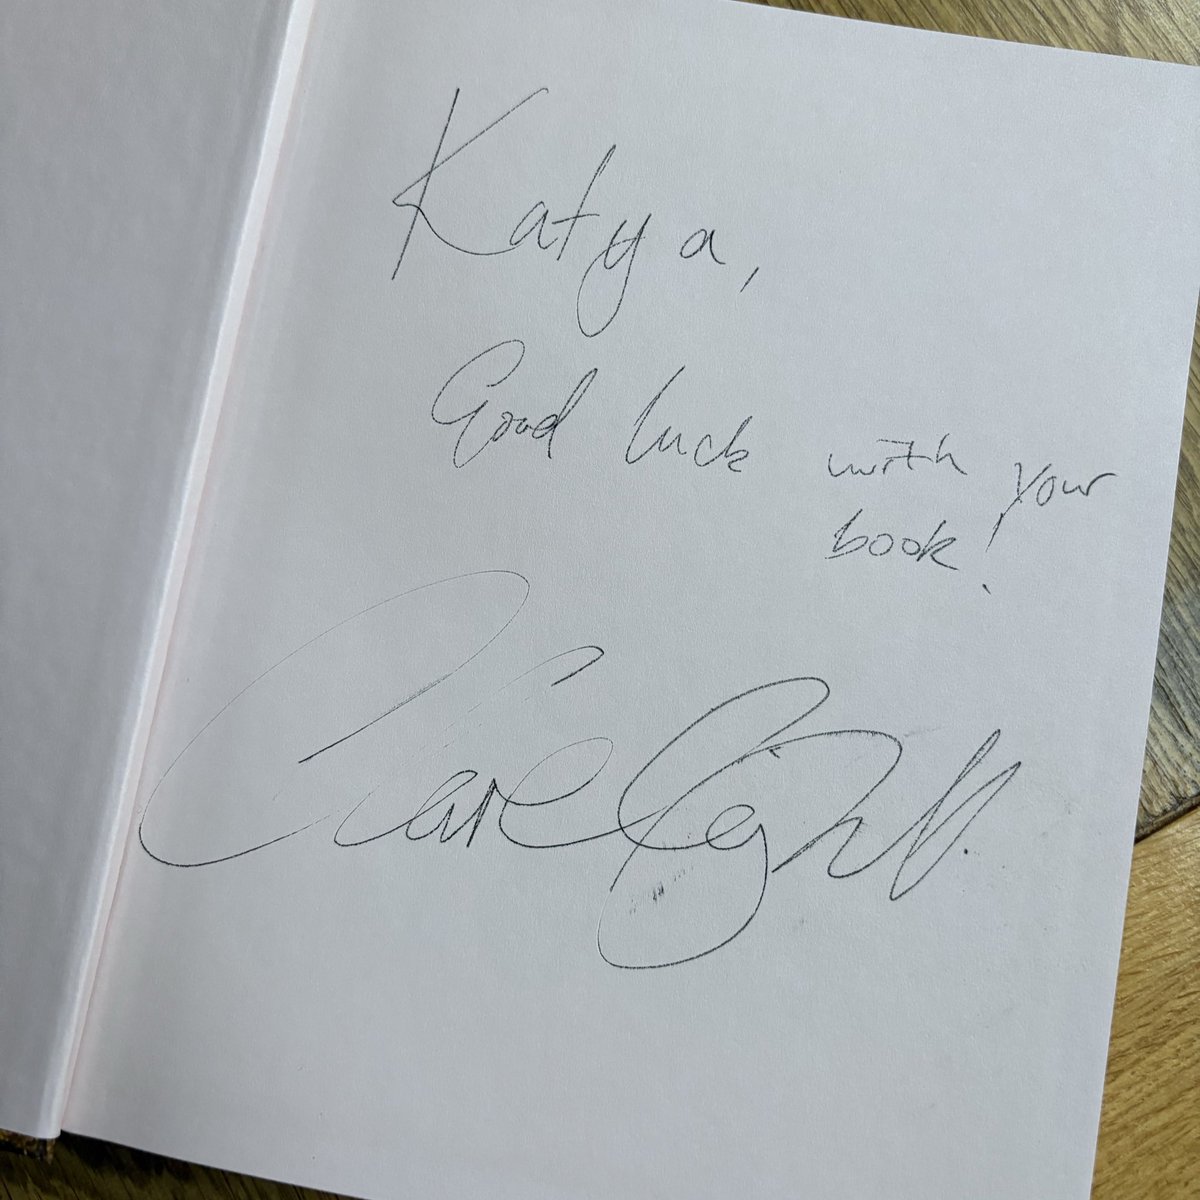 Katya,
Good luck with your
book!
Clare